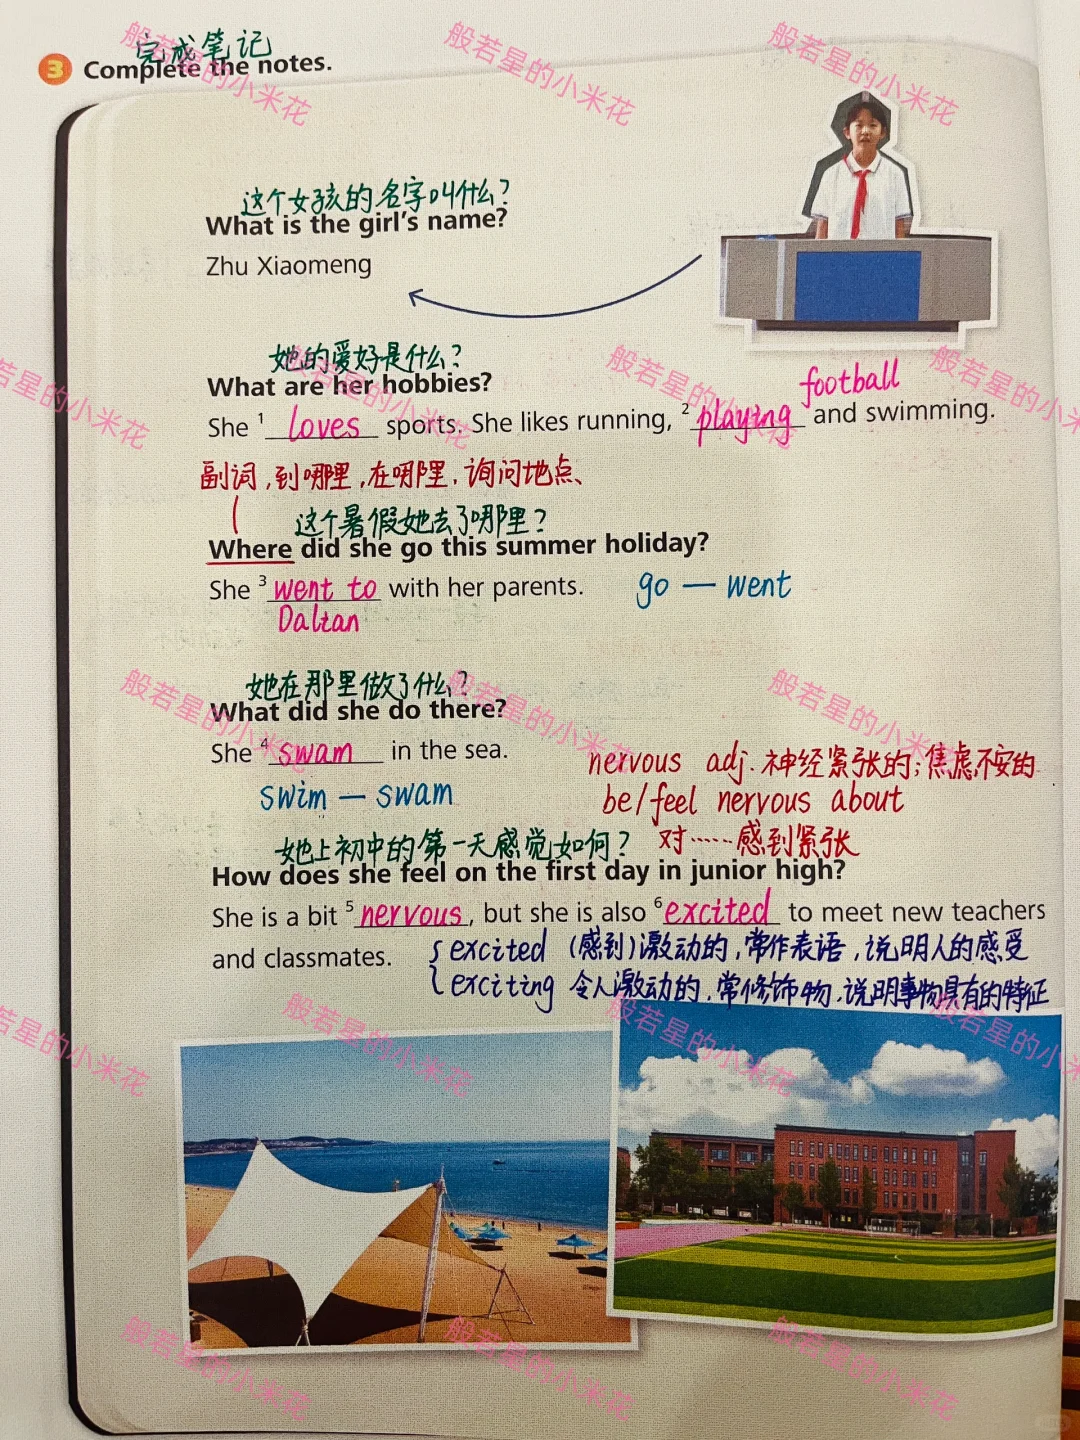 完成笔记
3 Complete the notes.
这个女孩的名字叫什么？
What is the girl's name?
Zhu Xiaomeng
她的爱好是什么？
What are her hobbies?
football
She 1 loves sports. She likes running, 2 playing and swimming.
副词，到哪里，在哪里，询问地点、
这个暑假她去了哪里？
Where did she go this summer holiday?
She 3 went to with her parents. go — went
Daltan
她在那里做了什么？
What did she do there?
She 4 swam in the sea.
nervous adj. 神经紧张的；焦虑不安的
swim — swam
be/feel nervous about
对……感到紧张
她上初中的第一天感觉如何？
How does she feel on the first day in junior high?
She is a bit 5 nervous, but she is also 6 excited to meet new teachers
and classmates.
excited （感到）激动的，常作表语，说明人的感受
exciting 令人激动的，常修饰物，说明事物具有的特征
般若星的小米花